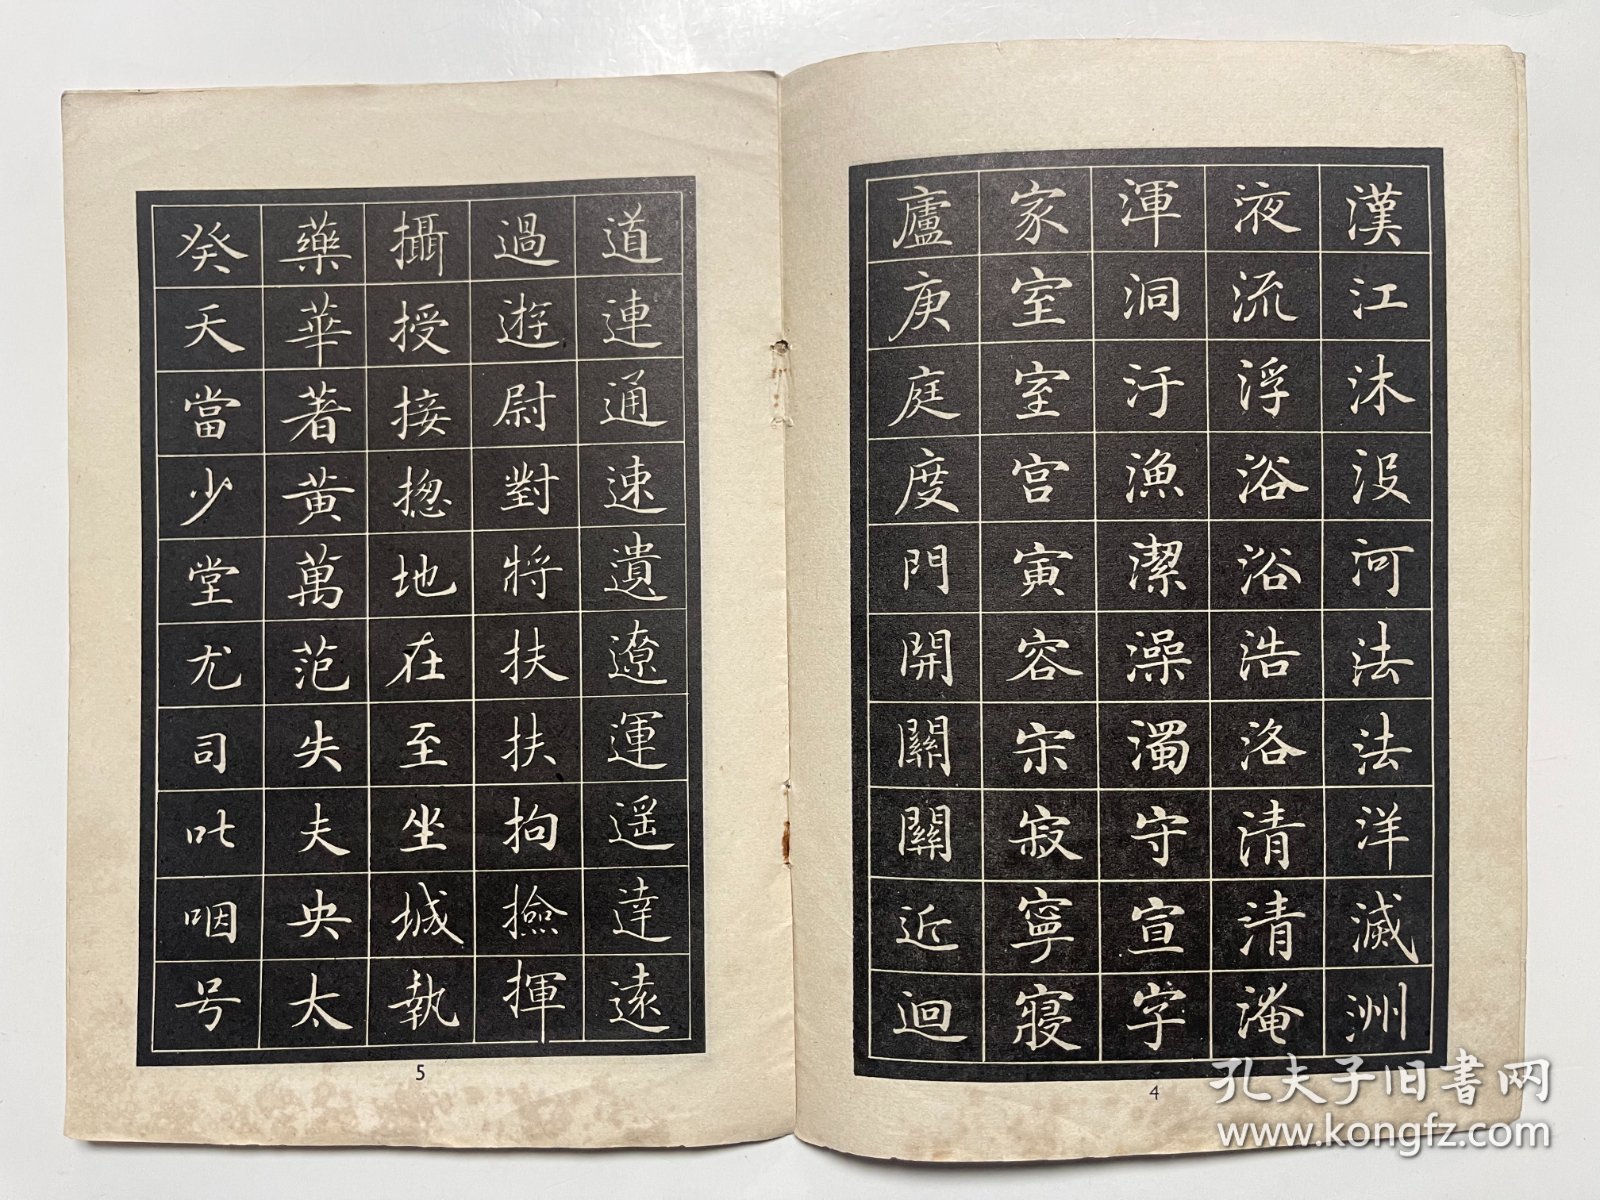 漢江沐沒河法法洋滅洲
液流浮浴浴浩洛清清淹
渾洞汙漁潔澡濁守宣字
家室室宫寅容宋寂寧寢
廬庚庭度門開關關近迴
4
道連通速遺遼運遥達遠
過遊尉對將扶扶拘撿揮
攝授接揔地在至坐城執
藥華著黄萬范失夫央太
癸天當少堂尤司吡咽号
5
孔夫子旧書网
www.kongfz.com